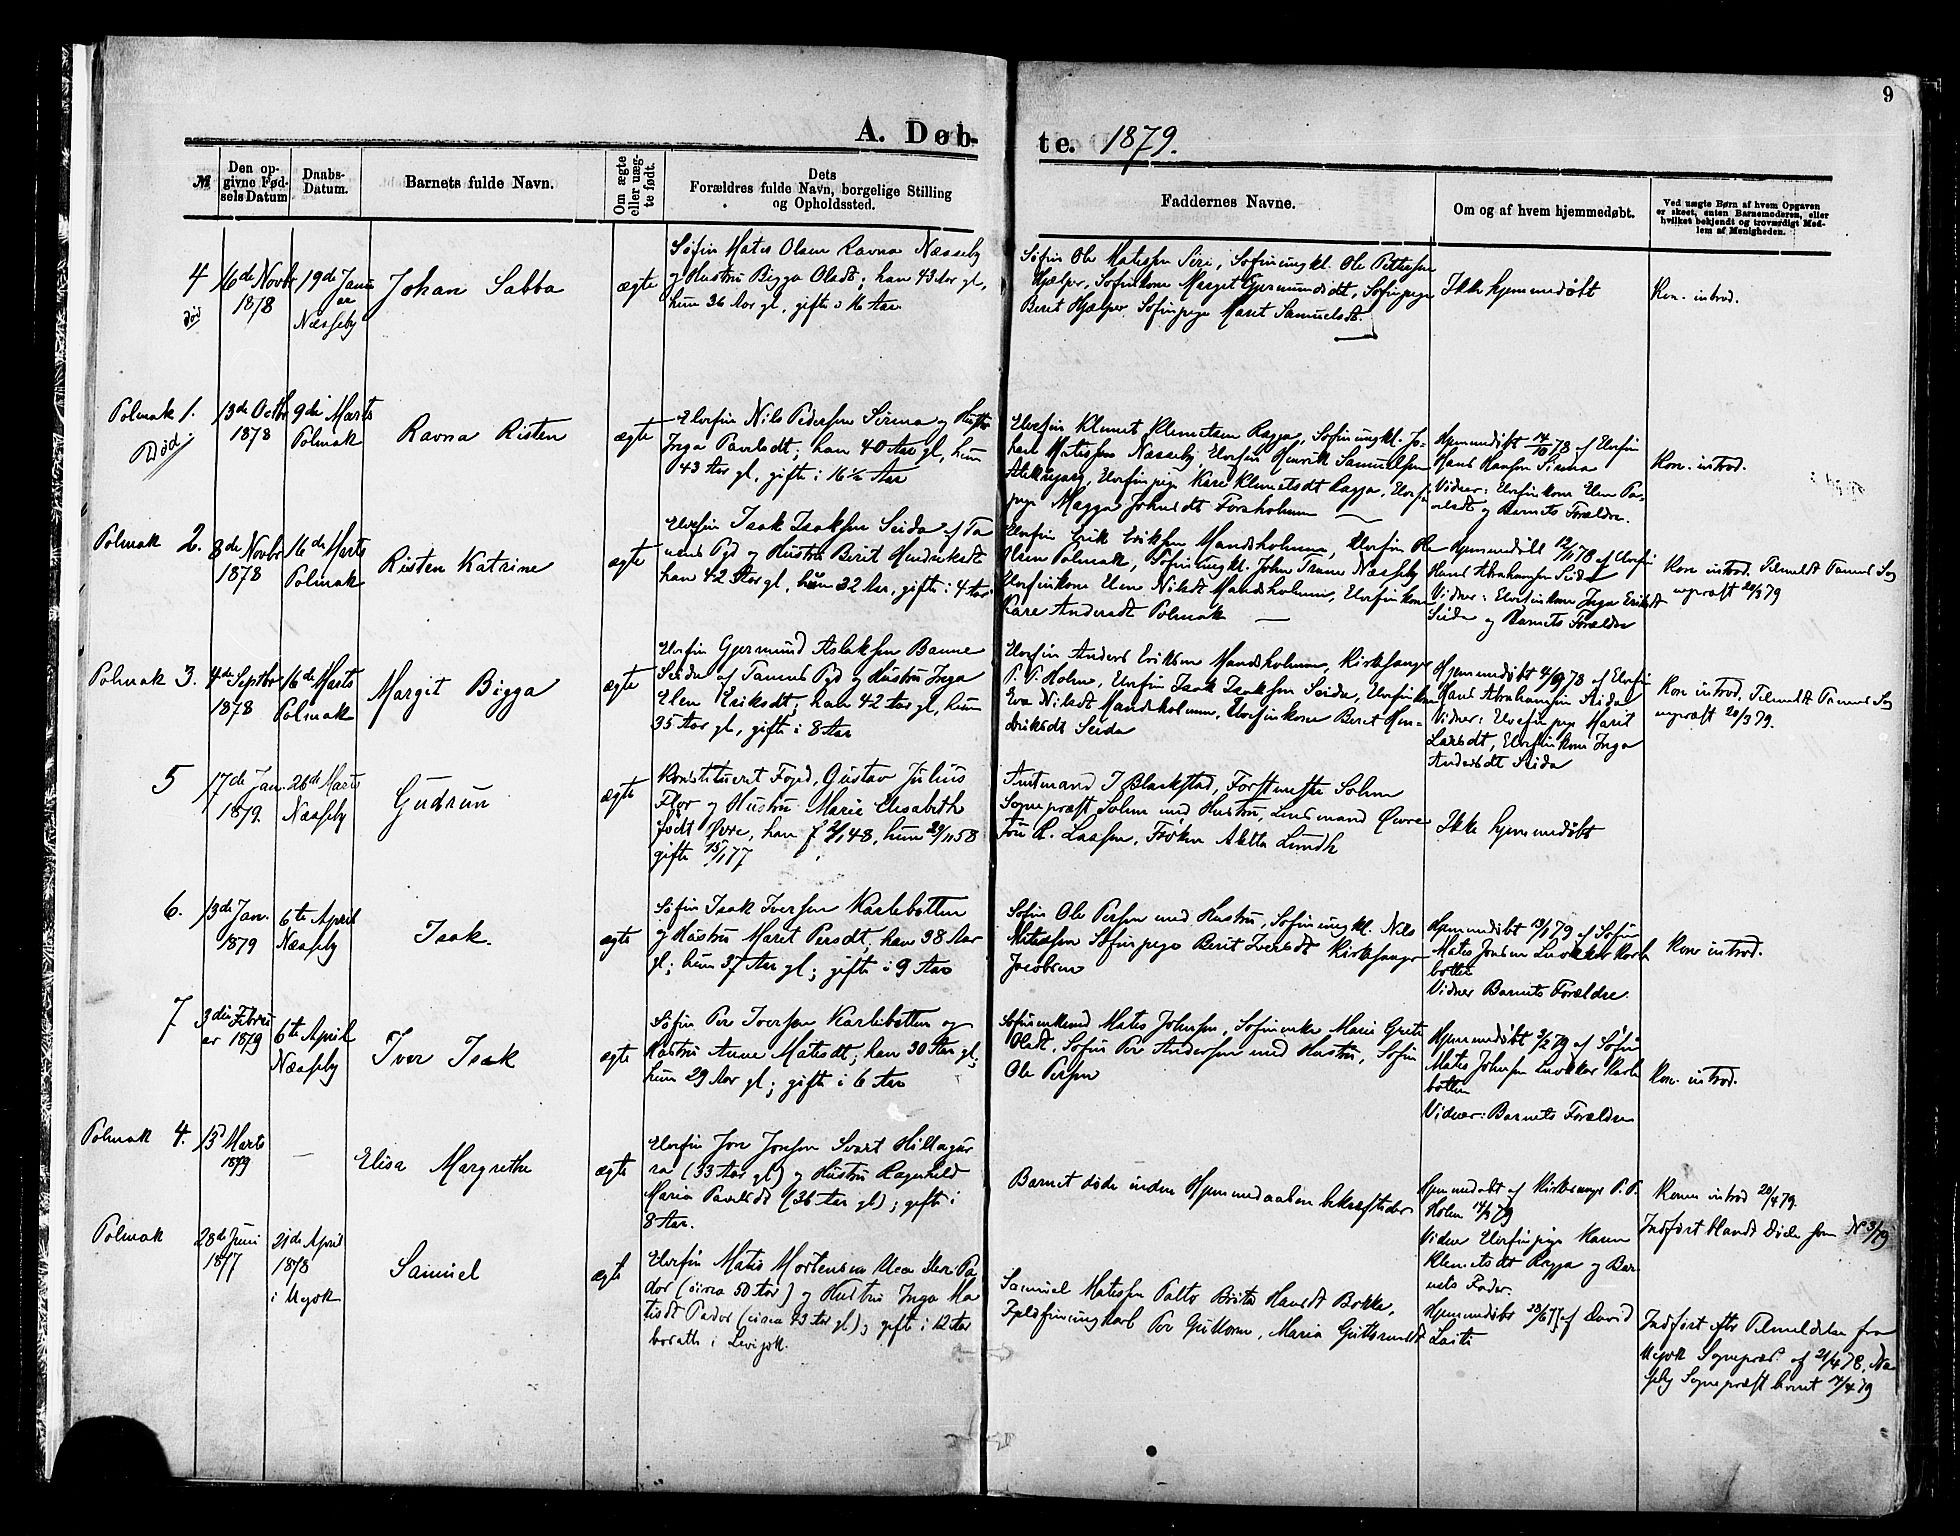 9
A. Døb-
te. 1879.
№
Den op-
givne Fød-
sels Datum
Daabs-
Datum.
Barnets fulde Navn.
Om ægte
eller uæg-
te født.
Dets
Forældres fulde Navn, borgelige Stilling
og Opholdssted.
Faddernes Navne.
Om og af hvem hjemmedøbt.
Ved uægte Børn af hvem Opgaven
er skeet, enten Barnemoderen, eller
hvilket bekjendt og troværdigt Med-
lem af Menigheden.
4
død
16de Novbr
1878
19de Janu
ar
Næsseby
Johan Sabba
ægte
Søfin Mates Olsen Ravna Næsseby
og Hustru Bigga Olsdt; han 43 Aar gl,
hun 36 Aar gl, gifte i 16 Aar
Søfin Ole Matessen Siri, Søfinungkl. Ole Pettersen
Hjelper, Søfinkone Marget Gjermundsdt, Søfinpige
Berit Hjelper, Søfinpige Marit Samuelsdt.
Ikke hjemmedøbt
Kon. introd.
Polmak 1.
Død
13de Octbr
1878
9de Marts
Polmak
Ravna Risten
ægte
Elvefin Nils Pedersen Sirma og Hustru
Inga Paulsdt; han 40 Aar gl, hun
43 Aar gl, gifte i 16½ Aar
Elvefin Klemet Klemetsen Ragga, Søfinungkl. Jo-
han Matessen Næsseby, Elvefin Henrik Samuelsen
Elvefinpige Kare Klemetsdt Ragga, Elvefin
pige Magga Johnsdt Forsholmen
Hjemmedøbt 14/10 78 af Elvefin
Hans Hansen Sirma
Vidner: Elvefinkone Elen Pa-
velsdt og Barnets Forældre.
Kon. introd.
Polmak 2.
8de Novbr
1878
16de Marts
Polmak
Risten Katrine
ægte
Elvefin Isak Isaksen Seida af Ta
nens Pgd og Hustru Berit Hendriksdt
han 42 Aar gl, hun 22 Aar, gifte i 4 Aar
Elvefin Erik Eriksen Mandsholmen, Elvefin Ole
Olsen Polmak, Søfinungkl. John Trane Næsseby
Elvefinkone Elen Nilsdt Mandsholmen, Elvefinkone
Kare Andersdt Polmak
Hjemmedøbt 12/11 78 af Elvefin
Hans Abrahamsen Seida
Vidner: Elvefinkone Inga Eriksdt
Seida og Barnets Forældre
Kon introd. Tilmeldt Tanens So
gnepræst 20/3 79
Polmak 3.
4de Septbr
1878
16de Marts
Polmak
Margit Bigga
ægte
Elvefin Gjermund Aslaksen Banne
Seida af Tanens Pgd og Hustru Inga
Elen Eriksdt; han 42 Aar gl, hun
35 Aar gl, gifte i 8 Aar
Elvefin Anders Eriksen Mandsholmen, Kirkesanger
P. P. Holm, Elvefin Isak Isaksen Seida, Elvefinkone
Eva Nilsdt Mandsholmen, Elvefinkone Berit Hen-
driksdt Seida
Hjemmedøbt 4/9 78 af Elvefin
Hans Abrahamsen Seida
Vidner: Elvefinpige Marit
Larsdt, Elvefinkone Inga
Andersdt Seida
Kon introd, Tilmeldt Tanens So
gnepræst 20/3 79.
5
17de Jan.
1879.
26de Marts
Næsseby
Gudrun
ægte
Konstitueret Foged, Gustav Julius
Flor og Hustru Marie Elisabeth
født Øvre, han f 2/1 48, hun 29/11 58
gifte 15/1 77
Amtmand J Blackstad, Forstmester Solem
Sognepræst Solem med Hustru, Lensmand Øvre
Fru L. Laassen, Frøken Aletta Lundh
Ikke hjemmedøbt
6.
13de Jan.
1879
6te April
Næsseby
Isak.
ægte
Søfin Isak Iversen Karlebotten
og Hustru Maret Persdt, han 38 Aar
gl; hun 37 Aar gl; gifte i 9 Aar
Søfin Ole Persen med Hustru, Søfinungkl. Nils
Matessen Søfinpige Berit Iversdt Kirkesanger
Jacobsen
Hjemmedøbt 13/1 79 af Søfin
Mates Jonsen Luokkar Karle
botten
Vidner Barnets Forældre.
Kone introd.
7
3die Febru
ar 1879
6te April
Næsseby
Iver Isak
ægte
Søfin Per Iversen Karlebotten og
Hustru Anne Matesdt; han 30 Aar gl;
hun 29 Aar gl; gifte i 6 Aar
Søfinenkemd Mates Johnsen, Søfinenke Marie Grete
Olsdt, Søfin Per Andersen med Hustru, Søfin
Ole Persen
Hjemmedøbt 3/2 79 af Søfin
Mates Johnsen Luokkar Karle
botten
Vidner: Barnets Forældre
Kon. introd.
Polmak 4.
13de Marts
1879
—
Elisa Margrethe
ægte
Elvefin Jon Jonsen Svart Hillagur
ra (33 Aar gl) og Hustru Ragnhild
Maria Pavelsdt (36 Aar gl); gifte i
8 Aar.
Barnet døde inden Hjemmedaaben bekræftedes
Hjemmedøbt af Kirkesanger P. P.
Holm 14/3 79
Vidner Elvefinpige Karen
Klemetsdt Ragga og Bar
nets Fader.
Konen introd 20/4 79.
Indført blandt Døde som No 3/79
Polmak
28de Juni
1877
21de April
1878
i Utsjok
Samuel
ægte
Elvefin Mates Mortensen Pa-
dor (circa 50 Aar) og Hustru Inga Ma
tisdt Pador (circa 43 Aar gl); gifte i 12 Aar
bosatte i Levijok.
Samuel Matessen Palto Brita Hansdt Bokke,
Fjeldfinungkarl Per Guttorm, Maria Guttormsdt
Hjemmedøbt 28/6 77 af David
Laiti
Indført efter Tilmeldelse fra
Utsjok Sognepræst af 21/4 78, Næs
seby Sognepræst 7/4 79